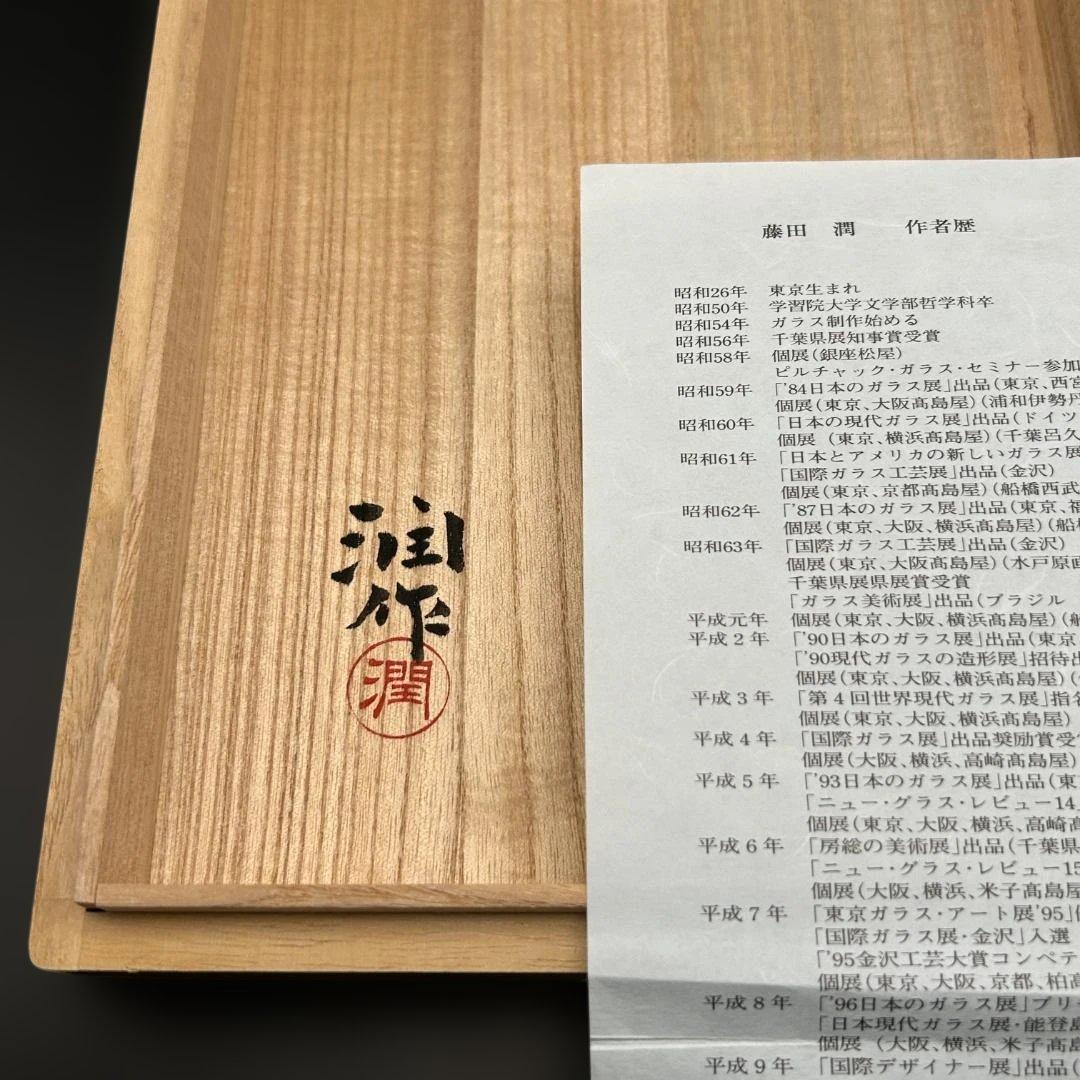 潤
作
潤
藤田 潤 作者歴
昭和26年 東京生まれ
昭和50年 学習院大学文学部哲学科卒
昭和54年 ガラス制作始める
昭和56年 千葉県展知事賞受賞
昭和58年 個展(銀座松屋)
ピルチャック・ガラス・セミナー参加
昭和59年 「'84日本のガラス展」出品(東京、西宮
個展(東京、大阪髙島屋)(浦和伊勢丹
昭和60年 「日本の現代ガラス展」出品(ドイツ
個展 (東京、横浜髙島屋)(千葉呂久
昭和61年 「日本とアメリカの新しいガラス展
「国際ガラス工芸展」出品(金沢)
個展(東京、京都髙島屋)(船橋西武
昭和62年 「'87日本のガラス展」出品(東京、福
個展(東京、大阪、横浜髙島屋)(船橋
昭和63年 「国際ガラス工芸展」出品(金沢)
個展(東京、大阪髙島屋)(水戸原画
千葉県展県展賞受賞
「ガラス美術展」出品(ブラジル
平成元年 個展(東京、大阪、横浜髙島屋)(船
平成2年 「'90日本のガラス展」出品(東京
「'90現代ガラスの造形展」招待出
個展(東京、大阪、横浜髙島屋)(
平成3年 「第4回世界現代ガラス展」指名
個展(東京、大阪、横浜髙島屋)
平成4年 「国際ガラス展」出品奨励賞受賞
個展(大阪、横浜、高崎髙島屋)
平成5年 「'93日本のガラス展」出品(東
「ニュー・グラス・レビュー14」
個展(東京、大阪、横浜、高崎髙
平成6年 「房総の美術展」出品(千葉県
「ニュー・グラス・レビュー15
個展(大阪、横浜、米子髙島屋
平成7年 「東京ガラス・アート展'95」
「国際ガラス展・金沢」入選
「'95金沢工芸大賞コンペテ
個展(東京、大阪、京都、柏髙
平成8年 「'96日本のガラス展」プリ
「日本現代ガラス展・能登島
個展 (大阪、横浜、米子髙島
平成9年 「国際デザイナー展」出品(